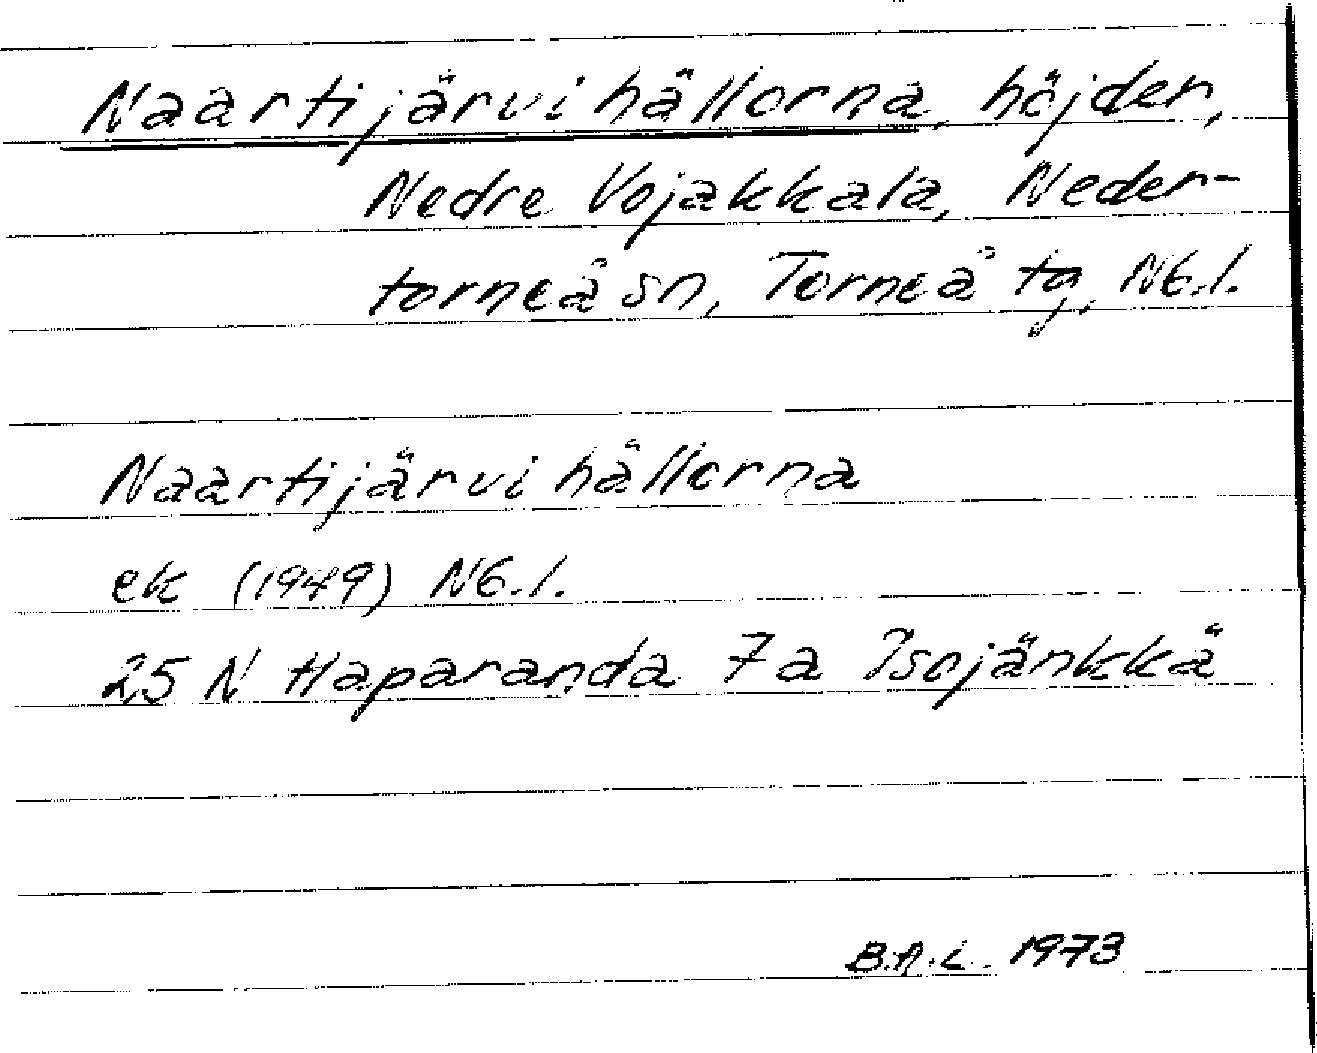 Naartijärvihällorna, höjder,
Nedre Vojakkala, Neder-
torneå sn, Torneå tg, Nb.l.
Naartijärvihällorna
ek (1949) Nb.l.
25 N Haparanda 7a Isojänkkä
B.A.L. 1973